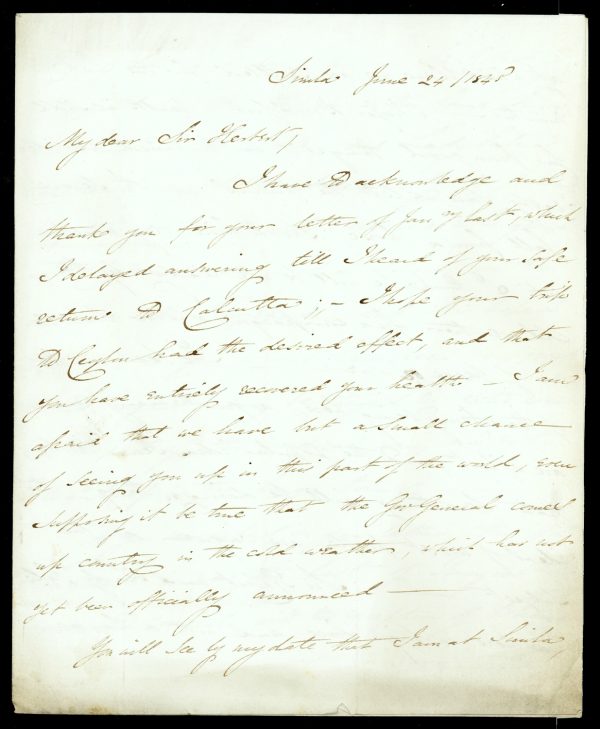 Simla June 24 / 1848
My dear Sir Herbert,
I have to acknowledge and
thank you for your letter of Jany last, which
I delayed answering till I heard of your safe
return to Calcutta; – I hope your trip
to Ceylon had the desired effect, and that
you have entirely recovered your health – I am
afraid that we have but a small chance
of seeing you up in this part of the world, even
supposing it be true that the Gov General comes
up country in the cold weather, which has not
yet been officially announced —
You will see by my date that I am at Simla,